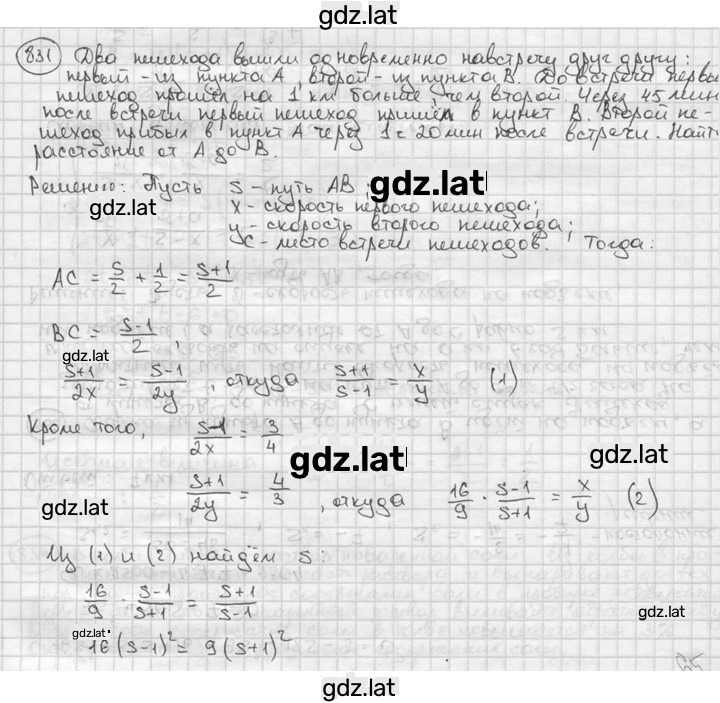 gdz.lat
831 Два пешехода вышли одновременно навстречу друг другу:
первый - из пункта А, второй - из пункта В. До встречи первый
пешеход прошёл на 1 км больше, чем второй. Через 45 мин
после встречи первый пешеход пришёл в пункт В. Второй пе-
шеход прибыл в пункт А через 1ч 20 мин после встречи. Найти
расстояние от А до В.
Решение: Пусть S - путь АВ;
gdz.lat
x - скорость первого пешехода;
gdz.lat
y - скорость второго пешехода;
C - место встречи пешеходов. Тогда:
AC = S/2 + 1/2 = (S+1)/2
BC = (S-1)/2,
gdz.lat
(S+1)/2x = (S-1)/2y, откуда (S+1)/(S-1) = x/y (1)
Кроме того, (S-1)/2x = 3/4
gdz.lat
gdz.lat
(S+1)/2y = 4/3, откуда 16/9 · (S-1)/(S+1) = x/y (2)
gdz.lat
Из (1) и (2) найдём S:
16/9 · (S-1)/(S+1) = (S+1)/(S-1)
gdz.lat
gdz.lat
16(S-1)² = 9(S+1)²
gdz.lat